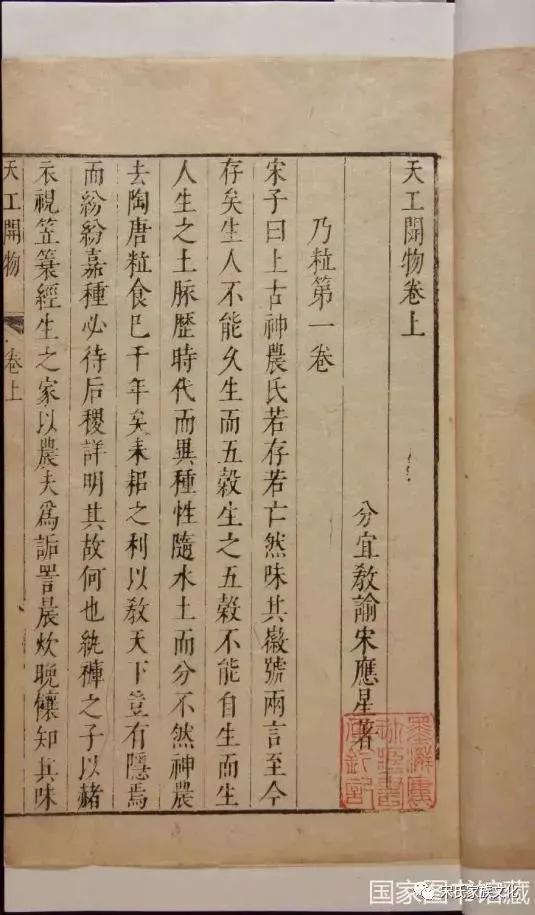 天工開物卷上
分宜教諭宋應星著
乃粒第一卷
宋子曰上古神農氏若存若亡然味其徽號兩言至今
存矣生人不能久生而五穀生之五穀不能自生而生
人生之土脈歷時代而異種性隨水土而分不然神農
去陶唐粒食已千年矣耒耜之利以教天下豈有隱焉
而紛紛嘉種必待后稷詳明其故何也紈褲之子以赭
衣視笠蓑經生之家以農夫為詬詈晨炊晚饟知其味
天工開物
卷上
宋氏家族文化
国家图书馆藏